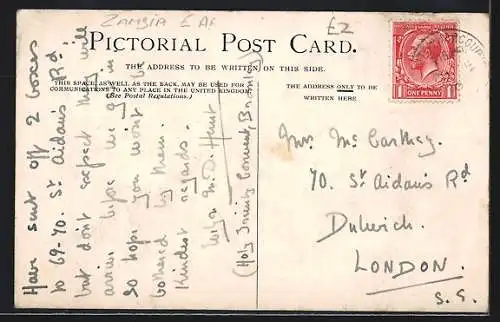 ZAMBIA E AF
£2
PICTORIAL POST CARD.
THE ADDRESS TO BE WRITTEN ON THIS SIDE.
THIS SPACE, AS WELL AS THE BACK, MAY BE USED FOR
COMMUNICATIONS TO ANY PLACE IN THE UNITED KINGDOM
(See Postal Regulations.)
THE ADDRESS ONLY TO BE
WRITTEN HERE
ONE PENNY
Have sent off 2 boxes
to 69-70. St Aidan's Rd!
but don't expect they will
arrive before we go in
so hope you wont be
bothered by them.
Kindest regards.
M. D. Hunt
(Holy Trinity Convent, Bromley)
Mrs. Mc Carthey.
70. St Aidan's Rd
Dulwich.
LONDON.
S. E.